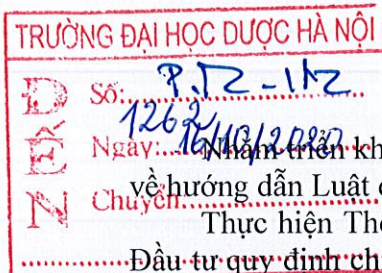 TRƯỜNG ĐẠI HỌC DƯỢC HÀ NỘI
ĐẾN
Số:
1262
Ngày: 16/10/2020
Chuyển
Nhằm triển kh
về hướng dẫn Luật đ
Thực hiện Thô
Đầu tư quy định ch